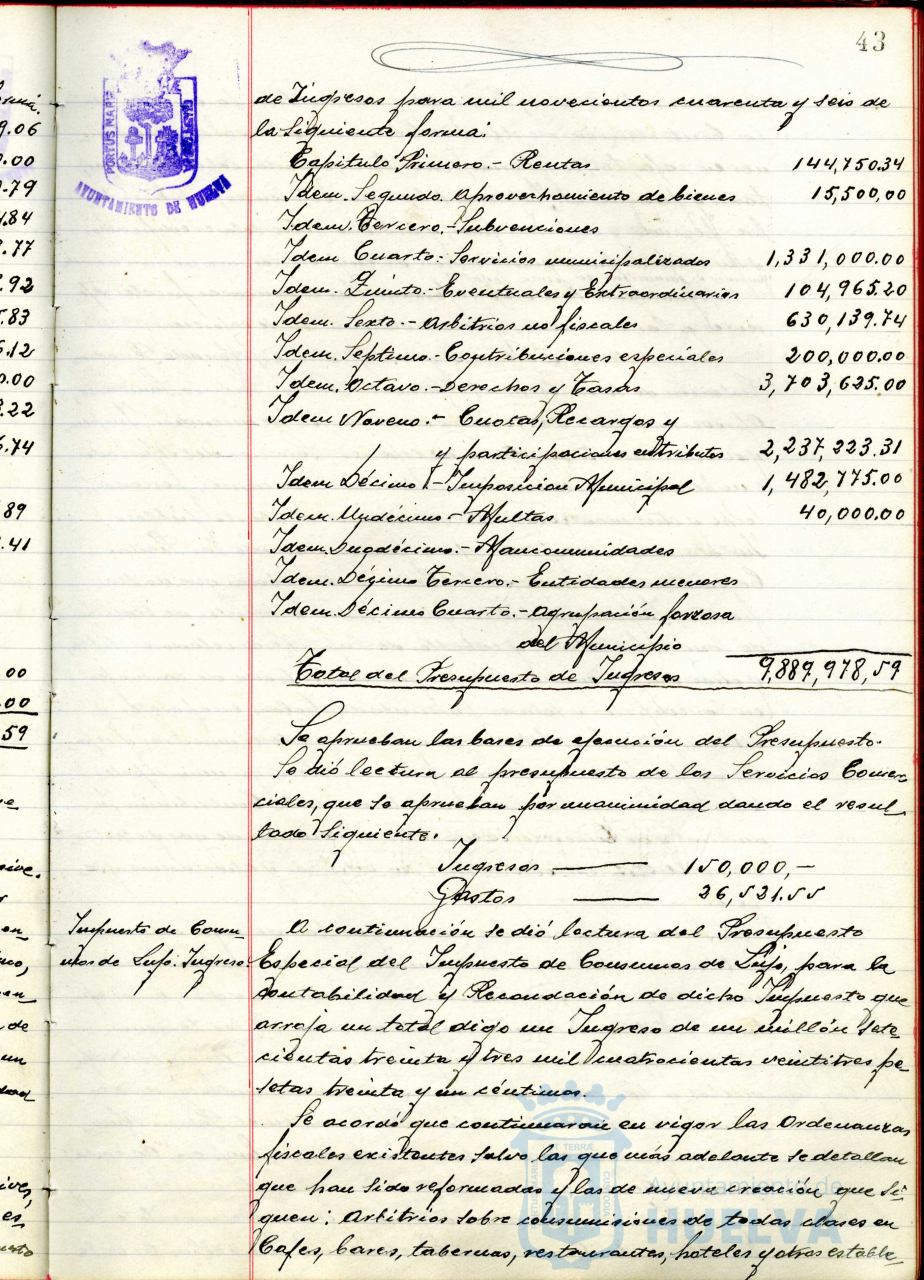 43
PORTUS MARIS
AYUNTAMIENTO DE HUELVA
de Ingresos para mil novecientos cuarenta y seis de
la siguiente forma:
Capitulo Primero.- Rentas 144,750.34
Idem. Segundo. Aprovechamiento de bienes 15,500,00
Idem. Tercero.- Subvenciones
Idem Cuarto.- Servicios municipalizados 1,331,000.00
Idem. Quinto.- Eventuales y Extraordinarios 104,965.20
Idem. Sexto.- Arbitrios no fiscales 630,139.74
Idem. Septimo.- Contribuciones especiales 200,000.00
Idem. Octavo.- Derechos y Tasas 3,703,625.00
Idem Noveno.- Cuotas, Recargos y
y participaciones en tributos 2,237,223.31
Idem Décimo.- Imposicion Municipal 1,482,775.00
Idem. Undécimo.- Multas 40,000.00
Idem. Duodécimo.- Mancomunidades
Idem. Décimo Tercero.- Entidades menores
Idem. Décimo Cuarto.- Agrupación forzosa
del Municipio
Total del Presupuesto de Ingresos 9,889,978,59
Se aprueban las bases de ejecución del Presupuesto.
Se dió lectura al presupuesto de los Servicios Comer-
ciales, que se aprueban por unanimidad dando el resul-
tado siguiente.
Ingresos — 150,000,-
Gastos — 26,521.55
Impuesto de Consu-
mos de Lujo. Ingreso.
A continuación se dió lectura del Presupuesto
Especial del Impuesto de Consumos de Lujo, para la
Contabilidad y Recaudación de dicho Impuesto que
arroja un total digo un Ingreso de un millón sete-
cientas treinta y tres mil cuatrocientas veintitres pe-
setas treinta y un céntimos.
Se acordó que continuaran en vigor las Ordenanzas
fiscales existentes salvo las que más adelante se detallan
que han sido reformadas y las de nueva creación que si-
guen: Arbitrios sobre consumisiones de todas clases en
Cafes, bares, tabernas, restaurantes, hoteles y otros estable-
Ayuntamiento de
HUELVA